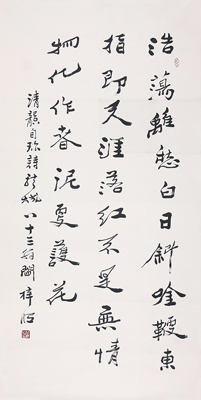 浩蕩離愁白日斜吟鞭東
指即天涯落紅不是無情
物化作春泥更護花
清龔自珍詩 八十三翁